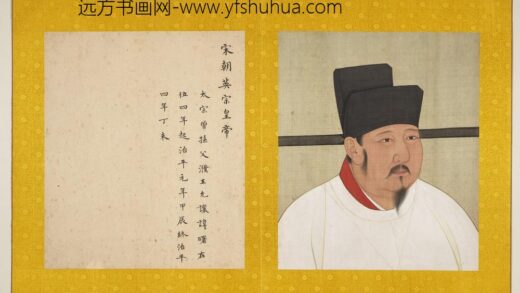 远方书画网-www.yfshuhua.com
宋朝英宗皇帝
太宗曾孫父濮王允讓諱曙在
位四年起治平元年甲辰終治平
四年丁未